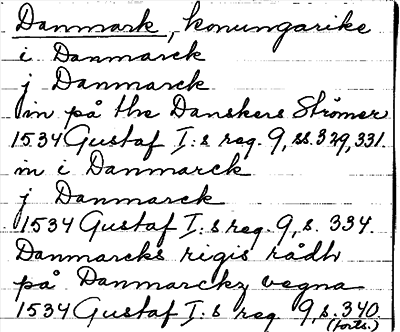 Danmark, konungarike
i Danmarck
j Danmarck
in på the Danskers Strömer
1534 Gustaf I:s reg. 9, ss. 329, 331.
in i Danmarck
j Danmarck
1534 Gustaf I:s reg. 9, s. 334.
Danmarcks rigis rådh
på Danmarckz vegna
1534 Gustaf I:s reg. 9, s. 340.
(forts.)